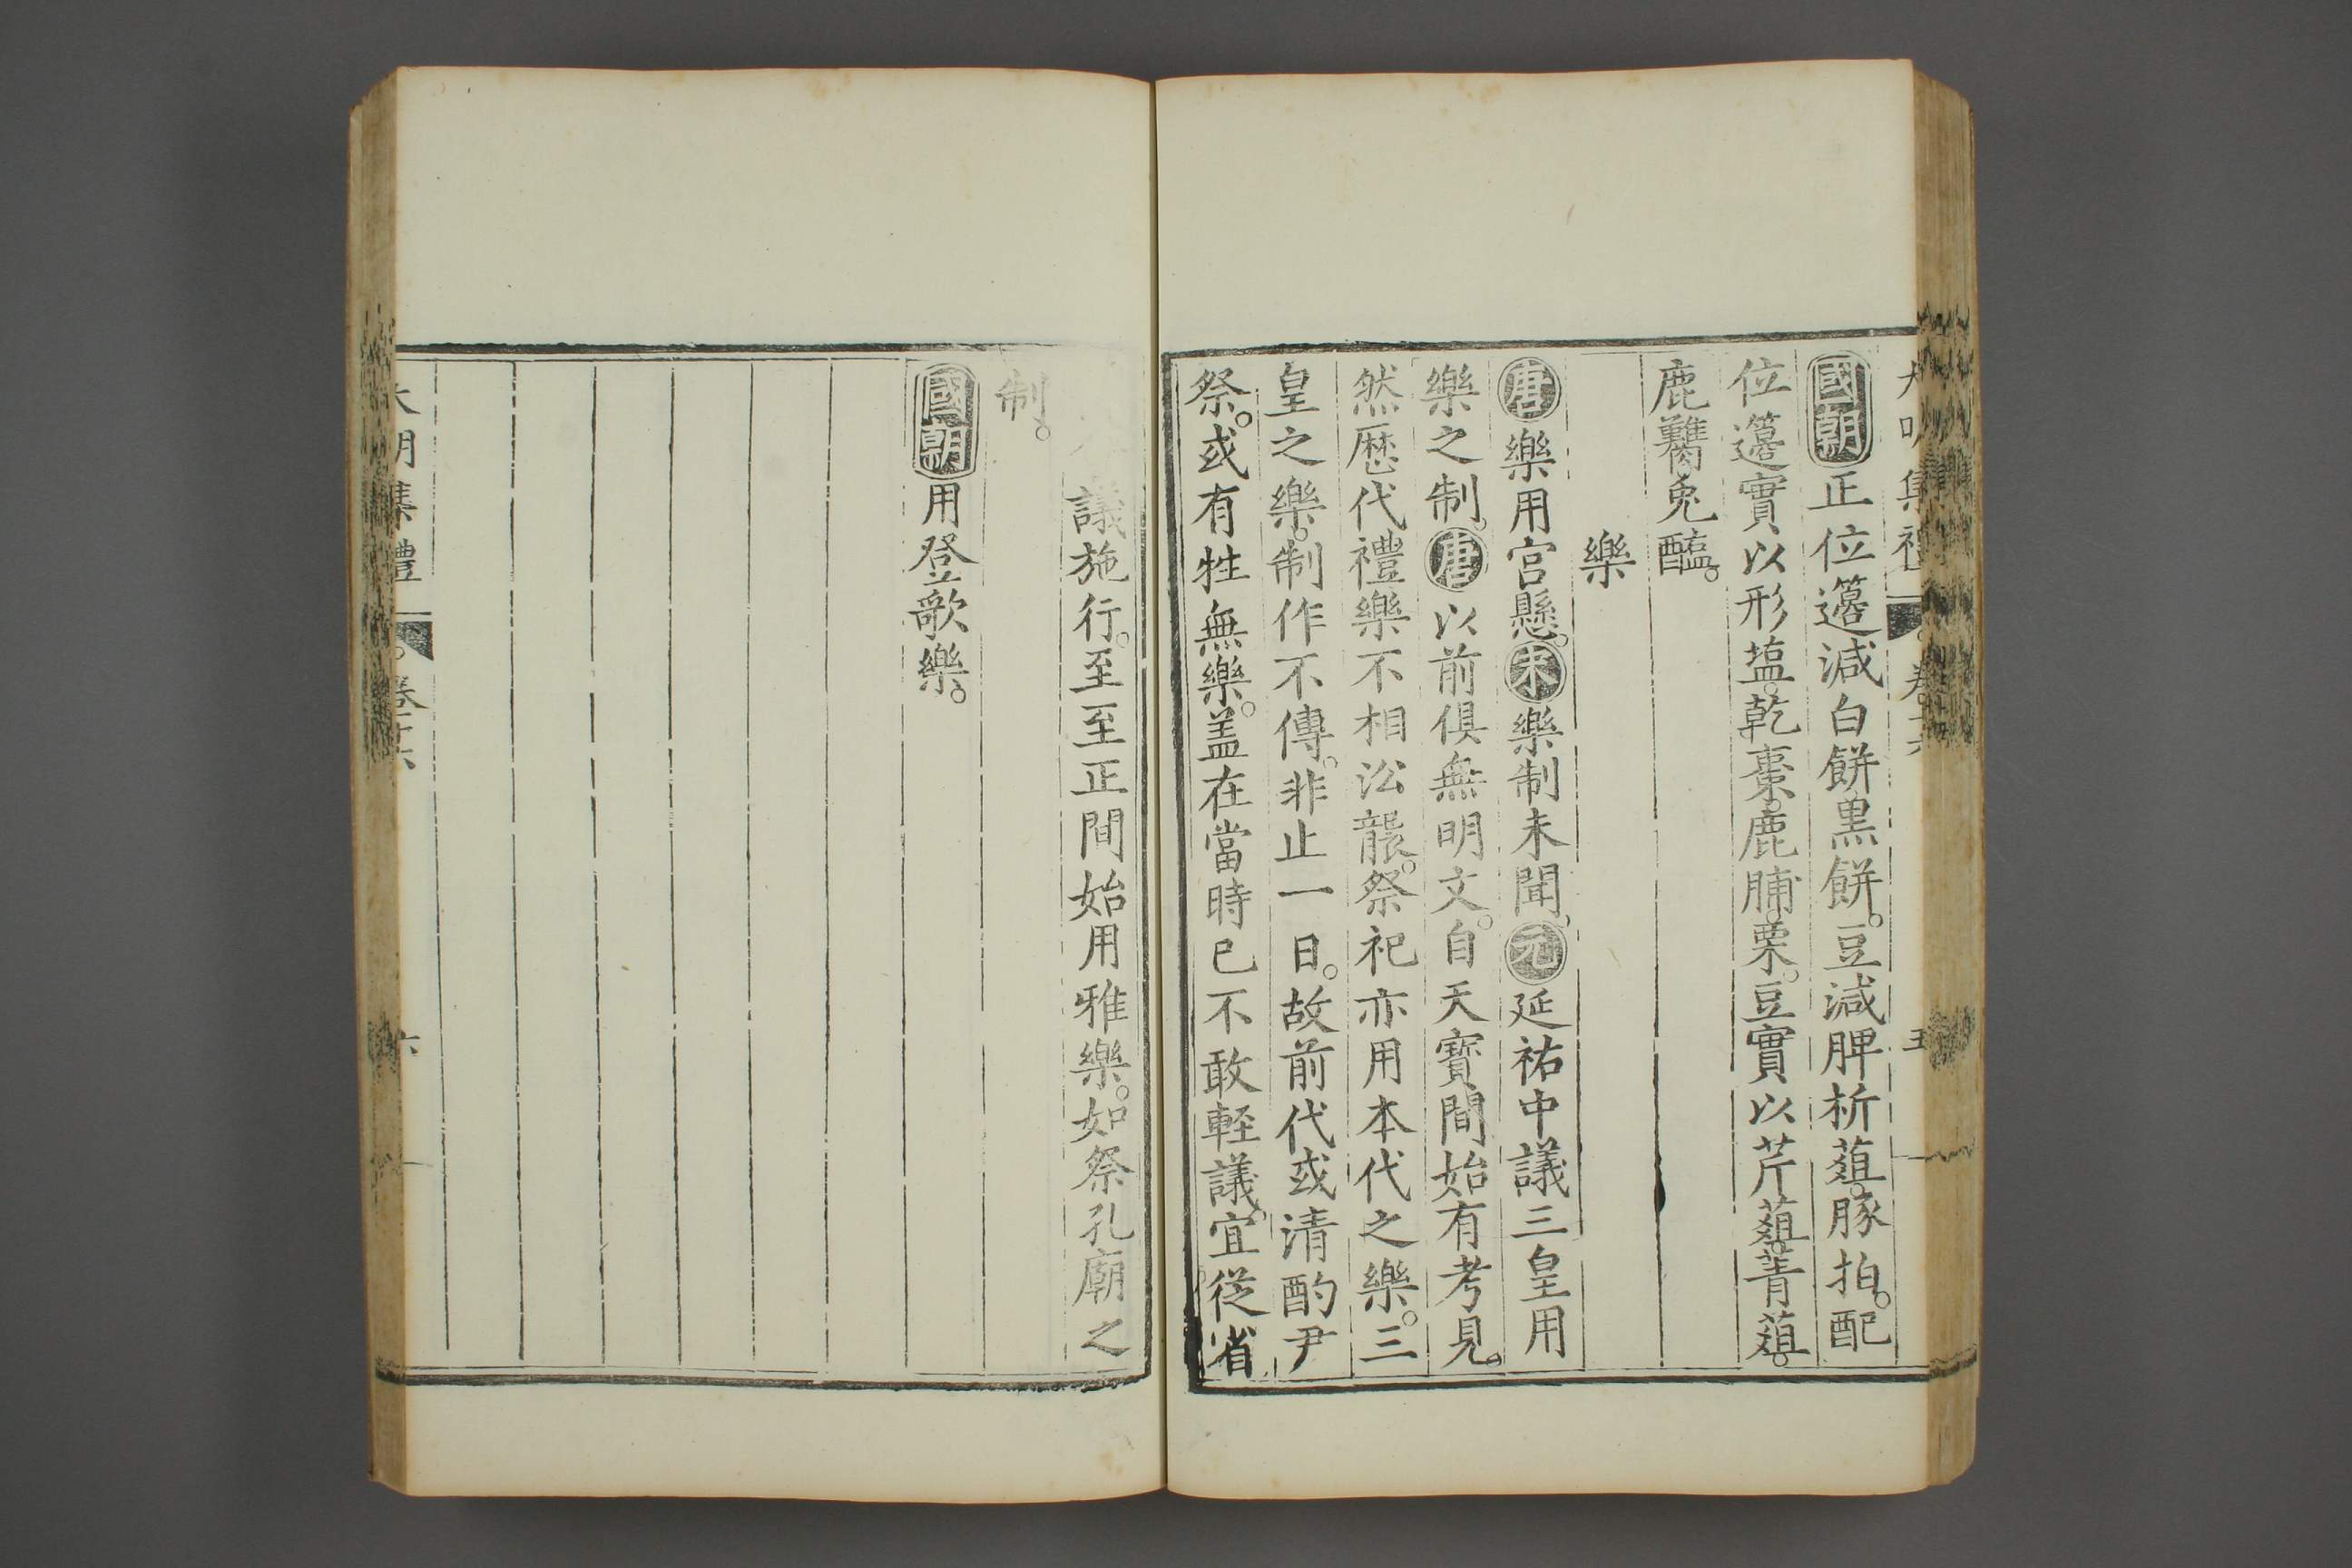 國朝正位籩減白餅黒餅。豆減脾析菹。豚拍。配
位籩實以形塩。乾棗。鹿脯。栗。豆實以芹菹。菁菹。
鹿鸛。兎醢。
樂
唐樂用宫懸。宋樂制未聞。元延祐中議三皇用
樂之制。唐以前俱無明文。自天寳間始有考見。
然歴代禮樂不相沿襲。祭祀亦用本代之樂。三
皇之樂。制作不傳。非止一日。故前代或清酌尹
祭。或有牲無樂。盖在當時已不敢輕議。宜從省
議施行。至至正間始用雅樂。如祭孔廟之
制。
國朝用登歌樂。
大明集禮 卷十六 六